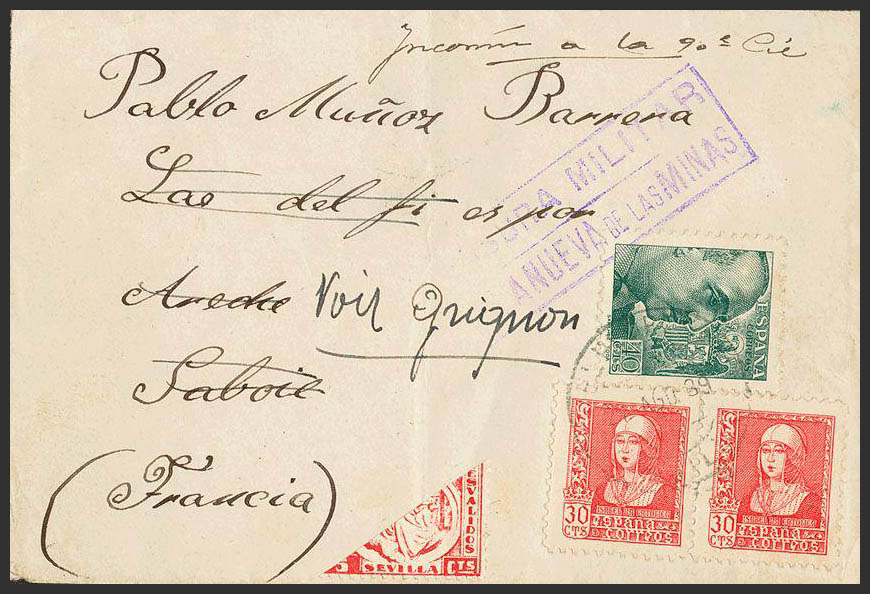 a la 90e Cie
Pablo Muñoz Barrera
del fi es por
Voir Grignon
Saboie
(Francia)
SURA MILITAR
ANUEVA DE LAS MINAS
40 CTS
ESPAÑA
CORREOS
AGO 39
30 CTS
ISABEL LA CATOLICA
ESPAÑA
CORREOS
30 CTS
ISABEL LA CATOLICA
ESPAÑA
CORREOS
ESVALIDOS
SEVILLA
CTS